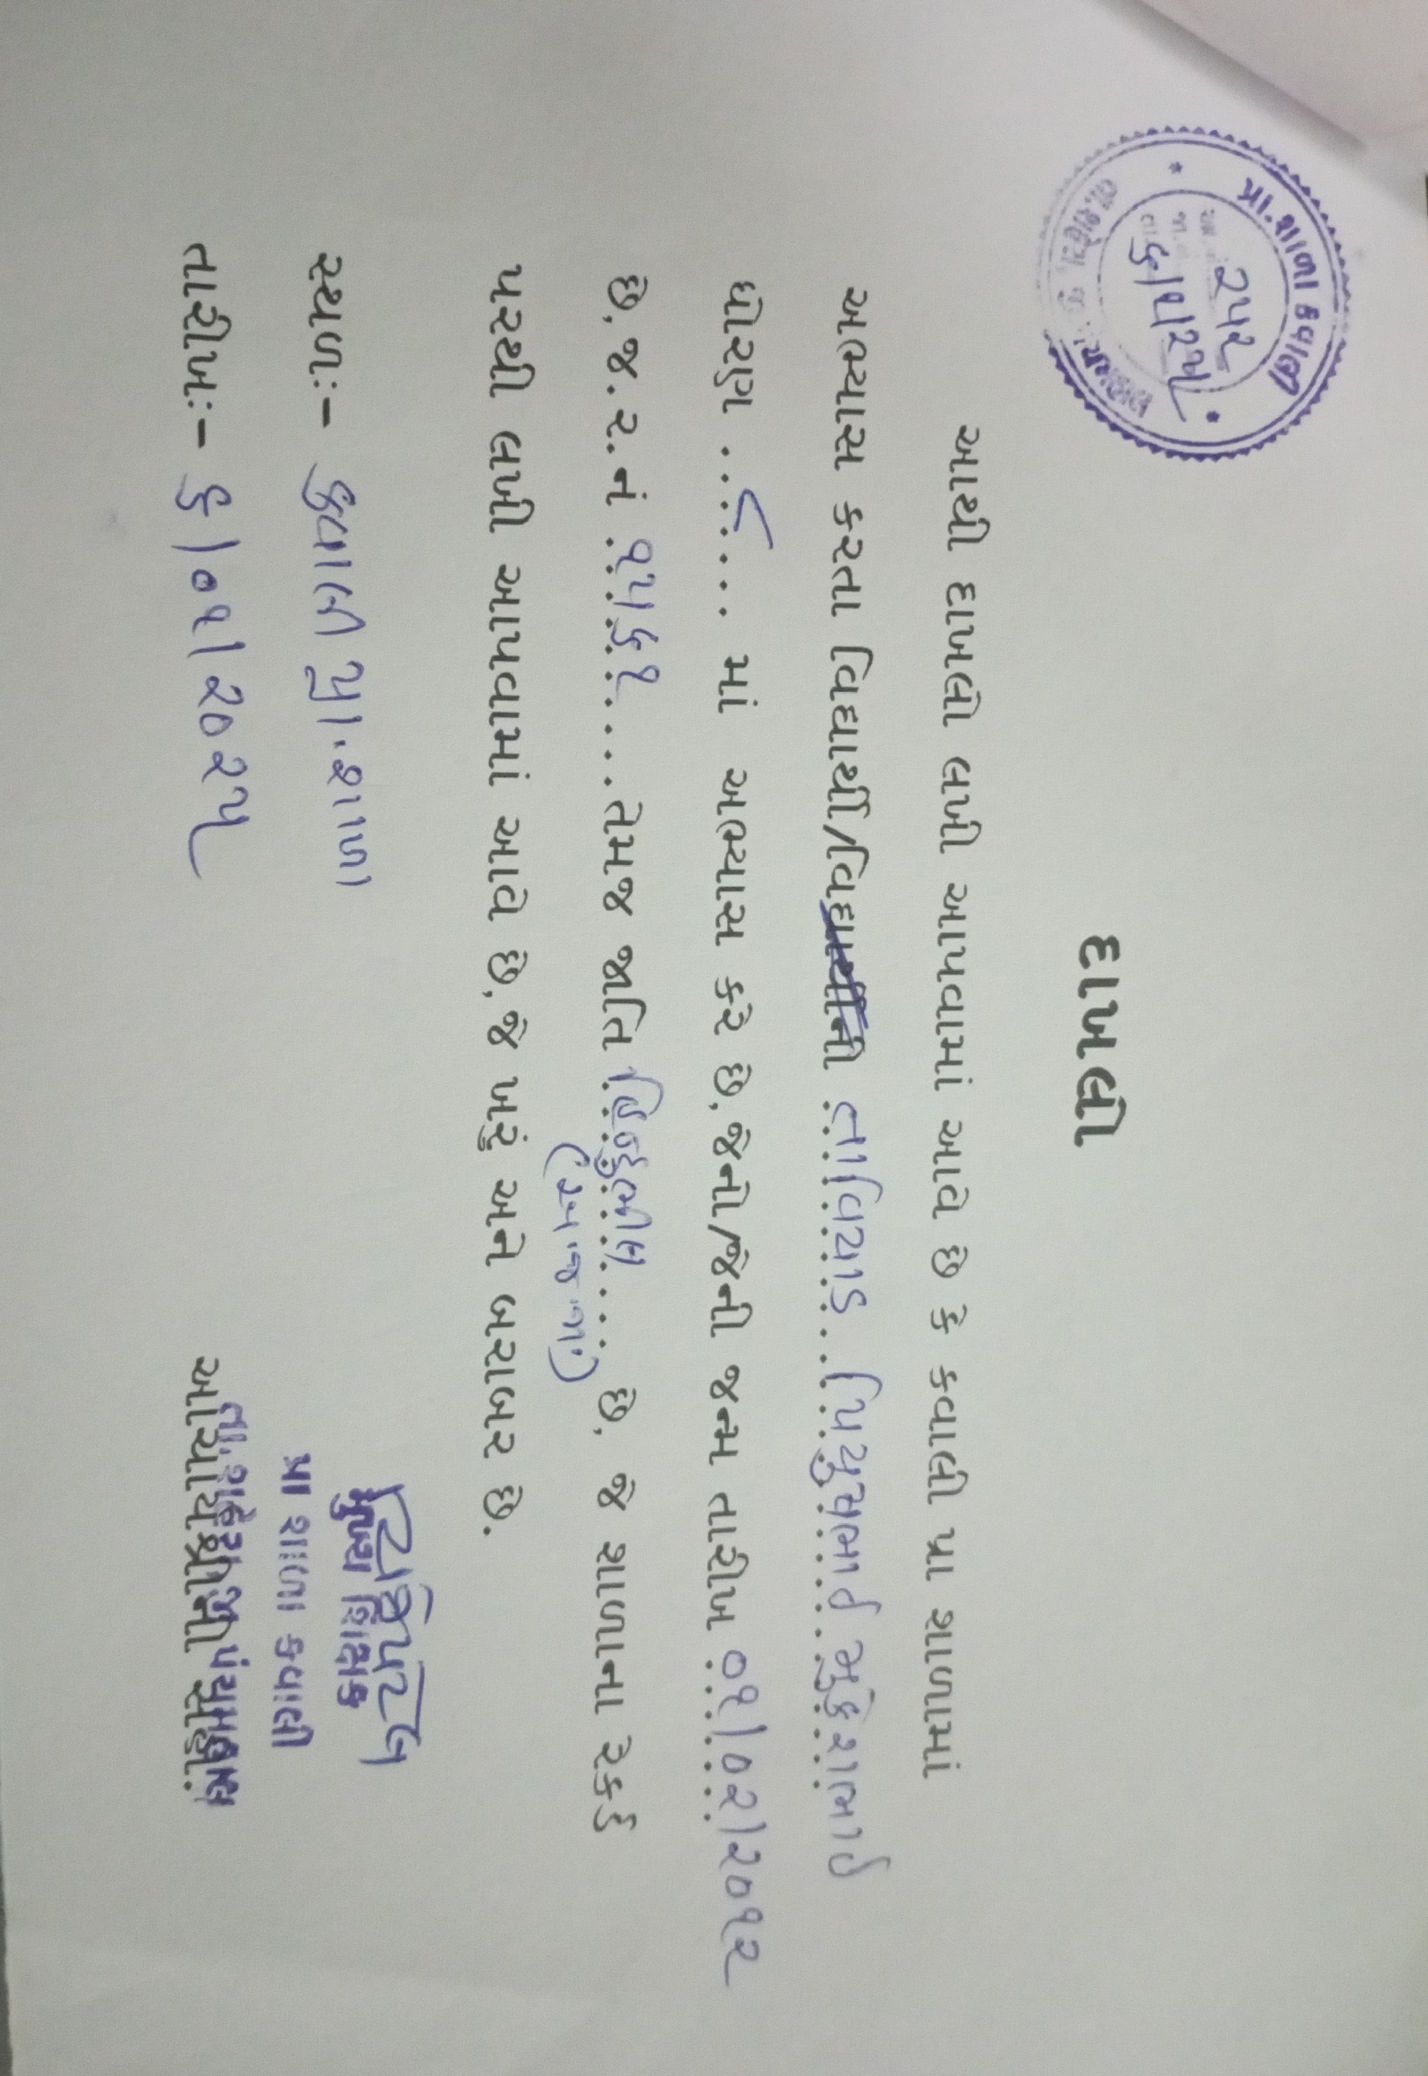 પ્રા.શાળા કવાલી
૨૫૨
દાખલો
આથી દાખલો લખી આપવામાં આવે છે કે કવાલી પ્રા શાળામાં
અભ્યાસ કરતા વિદ્યાર્થી/વિદ્યાર્થીની તાવિયાડ પિયુષભાઈ મુકેશભાઈ
ધોરણ ...૮..... માં અભ્યાસ કરે છે,જેનો/જેની જન્મ તારીખ ૦૧/૦૨/૨૦૧૨
છે,જ.ર.નં ૧૫૬૧....તેમજ જાતિ હિન્દુભીલ.... છે, જે શાળાના રેકર્ડ
(અ.જ.જા)
પરથી લખી આપવામાં આવે છે,જે ખરૂં અને બરાબર છે.
સ્થળઃ- કવાલી પ્રા.શાળા
મુખ્ય શિક્ષક
પ્રા શાળા કવાલી
તારીખઃ- ૬/૦૧/૨૦૨૫
તા.શહેરા,જી પંચમહાલ
આચાર્યશ્રીની સહી.